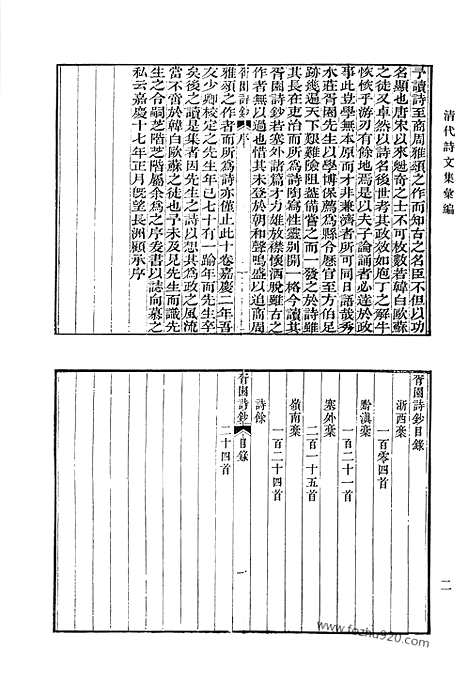 清代詩文集彙編
予讀詩至商周雅頌之作而知古之名臣不但以功
名顯也唐宋以來魁奇之士不可枚數若韓白歐蘇
之徒又卓然以詩名後世考其政效如庖丁之解牛
恢恢乎游刃有餘地焉是以夫子論誦者必達於政
事此豈學無本原而才非兼濟者所可同日語哉秀
水莊胥園先生以學博保薦爲縣令歷官至方伯足
跡幾遍天下艱難險阻葢備嘗之而一發之於詩雖
其長在吏治而所爲詩陶寫性靈別開一格今讀其
胥園詩鈔若塞外諸篇才力雄放襟懷洒脫雖古之
作者無以過也惜其未登於朝和聲鳴盛以追商周
胥園詩鈔
序
雅頌之作者而所爲詩亦僅止此十卷嘉慶二年吾
友少卿校定之先生年已七十有一踰年而先生卒
矣後之讀是集者因先生之詩以想其爲政之風流
當不啻於韓白歐蘇之徒也予未及見先生而識先
生之合嗣芝階芝階屬余爲之序爰書以誌向慕之
私云嘉慶十七年正月旣望長洲顧承序
胥園詩鈔目錄
浙西槀
一百零四首
黔滇槀
一百二十一首
塞外槀
二百一十五首
嶺南槀
一百二十四首
詩餘
二十四首
胥園詩鈔
目錄
一
二
www.fozhu920.com